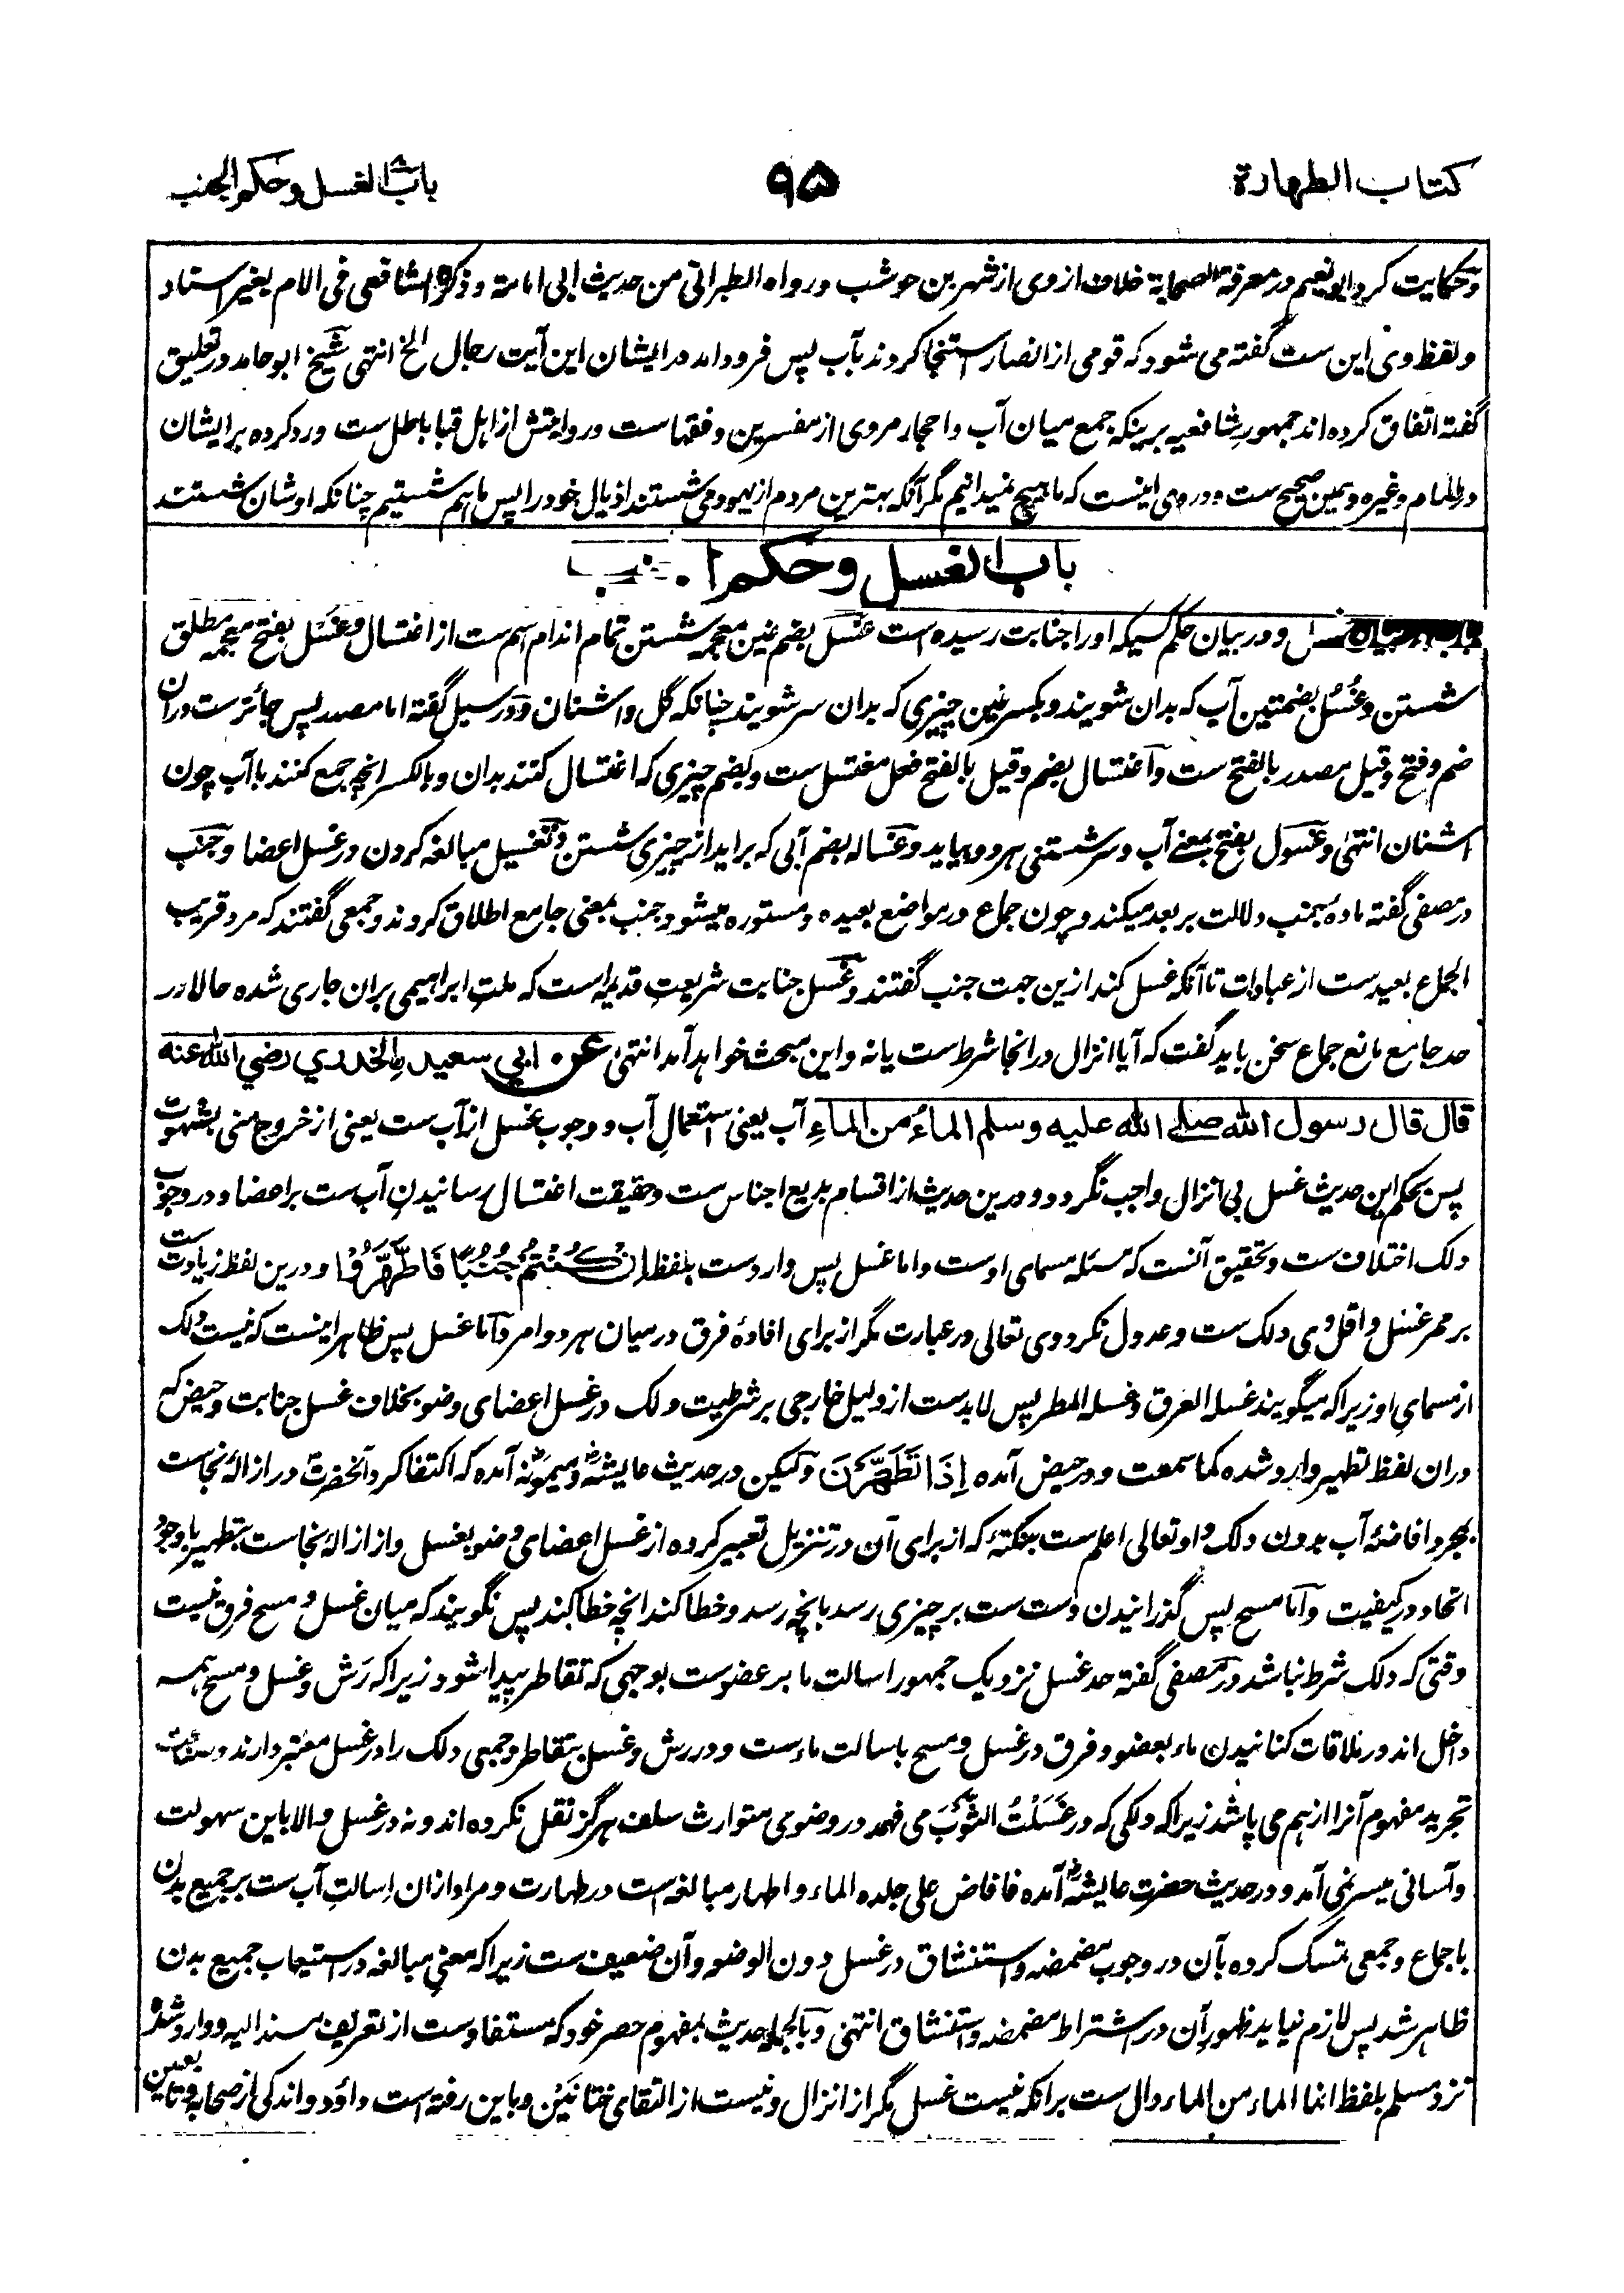 کتاب الطهارة
۹۵
باب الغسل وحکم الجنب
وحکایت کرد ابونعیم در معرفة الصحابة خلاف از وی از شهر بن حوشب ورواه الطبرانی من حدیث ابی امامة وذکره الشافعی فی الام بغیر اسناد
ولفظ وی این ست گفته می شود که قومی از انصار استنجا کردند بآب پس فرود امد در ایشان این آیت رجال الخ انتهی شیخ ابو حامد در تعلیق
گفته اتفاق کرده اند جمهور شافعیه برینکه جمع میان آب واحجار مروی از مفسرین وفقهاست وروایتش از اهل قبا باطل ست ورد کرده بر ایشان
در المام وغیره وهمین صحیح ست ودر وی اینست که ما هیچ نمیدانیم مگر آنکه بهترین مردم از یهود می شستند اذیال خود را پس ما هم شستیم چنانکه اوشان شستند
باب الغسل وحکم
ودر بیان حکم کسیکه اورا جنابت رسیده است غسل بضم غین معجمه شستن تمام اندام اسم ست از اغتسال وغسل بفتح معجمه مطلق
شستن وغُسُل بضمتین آب که بدان شویند وبکسر غین چیزی که بدان سر شویند چنانکه گل واشنان ودر سبل گفته اما مصدر پس جائزست دران
ضم وفتح وقیل مصدر بالفتح ست واغتسال بضم وقیل بالفتح فعل مغتسل ست وبضم چیزی که اغتسال کنند بدان وبالکسر انچه جمع کنند با آب چون
اشنان انتهی وغسول بفتح بمعنے آب وسر شستنی هر دو بیاید وغساله بضم آبی که براید از چیزی شستن وتغسیل مبالغه کردن در غسل اعضا وجنب
در مصفی گفته ماده جنب دلالت بر بعد میکند وچون جماع در مواضع بعیده ومستوره میشود جنب بمعنی جامع اطلاق کردند وجمعی گفتند که مرد قریب
الجماع بعیدست از عبادات تا آنکه غسل کند ازین جهت جنب گفتند وغسل جنابت شریعتِ قدیمه است که ملتِ ابراهیمی بران جاری شده حالا در
حد جامع مانع جماع سخن باید گفت که آیا انزال در انجا شرط ست یا نه واین مبحث خواهد آمد انتهی عن ابی سعید الخدری رضی الله عنه
قال قال رسول الله صلی الله علیه وسلم الماءُ من الماءِ آب یعنی استعمالِ آب ووجوب غسل از آب ست یعنی از خروج منی بشهوت
پس بحکم این حدیث غسل بی انزال واجب نگردد ودرین حدیث از اقسام بدیع اجناس ست وحقیقت اغتسال رسانیدنِ آب ست بر اعضا ودر وجوب
دلک اختلاف ست وتحقیق آنست که مسئله مسمای اوست واما غسل پس واردست بلفظ اِنْ کُنْتُمْ جُنُبًا فَاطَّهَّرُوْا ودرین لفظ زیادت ست
بر مجرد غسل واقل وی دلک ست وعدول نکرد وی تعالی در عبارت مگر از برای افادهٔ فرق درمیان هر دو امر واما غسل پس ظاهر اینست که نیست دلک
از مسمای او زیرا که میگویند غسله العرق وغسله المطر پس لابدست از دلیل خارجی بر شرطیت دلک در غسل اعضای وضو بخلاف غسل جنابت وحیض که
دران لفظ تطهیر وارد شده کما سمعت ودر حیض آمده اِذَا تَطَهَّرْنَ ولیکن در حدیث عایشه ومیمونه آمده که اکتفا کرد آنحضرت در ازالهٔ نجاست
بمجرد افاضهٔ آب بدون دلک واو تعالی اعلم ست بنکتهٔ که از برای آن در تنزیل تعبیر کرده از غسل اعضای وضو بغسل واز ازالهٔ نجاست بتطهیر با وجود
اتحاد در کیفیت واما مسح پس گذرانیدن دست ست بر چیزی رسد بانچه رسد وخطا کند انچه خطا کند پس نگویند که میان غسل ومسح فرق نیست
وقتی که دلک شرط نباشد در مصفی گفته حد غسل نزدیک جمهور اسالت ما بر عضوست بوجهی که تقاطر پیدا شود زیرا که رَش وغسل ومسح همه
داخل اند در ملاقات کنانیدن ماء بعضو وفرق در غسل ومسح باسالت ماءست ودر رش وغسل بتقاطر وجمعی دلک را در غسل معتبر دارند
تجرید مفهوم آنرا از هم می پاشد زیرا که دلکی که در غَسَلْتُ الثَّوْبَ می فهمد در وضوی متوارث سلف هرگز نقل نکرده اند ونه در غسل والا باین سهولت
وآسانی میسر نمی آمد ودر حدیث حضرت عایشه آمده فافاض علی جلده الماء واطهار مبالغه است در طهارت ومراد ازان اسالتِ آب ست بر جمیع بدن
باجماع وجمعی تمسک کرده بآن در وجوب مضمضه واستنشاق در غسل دون الوضو وآن ضعیف ست زیرا که معنیِ مبالغه در استیعاب جمیع بدن
ظاهر شد پس لازم نیاید ظهور آن در اشتراط مضمضه واستنشاق انتهی وبالجمله حدیث بمفهوم حصر خود که مستفادست از تعریف مسند الیه ووارد شده
نزد مسلم بلفظ انما الماء من الماء دال ست برانکه نیست غسل مگر از انزال ونیست از التقای ختانَیْن وباین رفته است داؤد واندکی از صحابه وتابعین